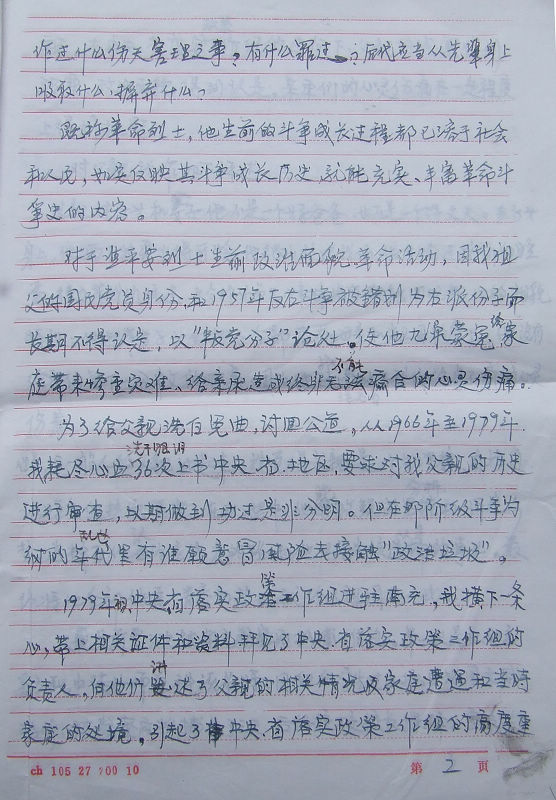 作过什么伤天害理之事？有什么罪过？后代应当从先辈身上
吸取什么，摒弃什么？
既称革命烈士，他生前的斗争成长过程都已溶于社会
和人民，如实反映其斗争成长历史，就能充实、丰富革命斗
争史的内容。
对于 平安烈士生前政治面貌、革命活动，因我祖
父的国民党员身份和1957年反右斗争被错划为右派份子而
长期不得认定，以"叛党分子"论处。使他九泉蒙冤，给家
庭带来惨重灾难、给亲朋造成终身不能痊合的心灵伤痛。
为了给父亲洗白冤曲，讨回公道，从1966年至1979年
我耗尽心血，36次上书中央、省、地区，要求对我父亲的历史
进行审查，以期做到功过是非分明。但在那阶级斗争为
纲的乱世年代里有谁愿意冒风险去接触"政治垃圾"。
1979年 中央、省落实政策工作组进驻南充，我横下一条
心，带上相关证件和资料拜见了中央、省落实政策工作组的
负责人，向他们讲述了父亲的相关情况及家庭遭遇和当时
家庭的处境，引起了中央、省落实政策工作组的高度重
ch 105 27 700 10
第 2 頁